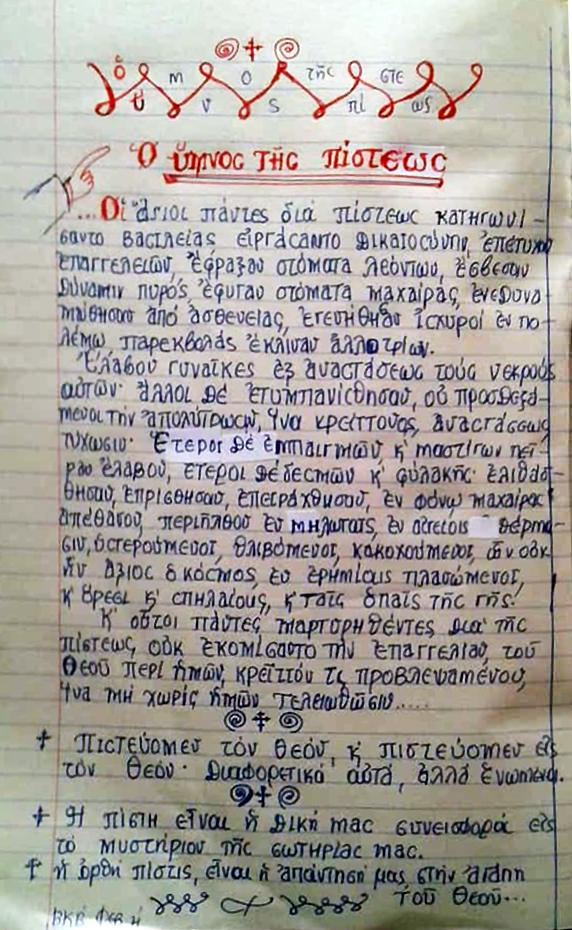 ὁ ὕμνος τῆς πίστεως
Ὁ ὕμνος τῆς πίστεως
...Οἱ ἅγιοι πάντες διά πίστεως κατηγωνί-
σαντο βασιλείας εἰργάσαντο δικαιοσύνην, ἐπέτυχον
ἐπαγγελειῶν, ἔφραξαν στόματα λεόντων, ἔσβεσαν
δύναμιν πυρός, ἔφυγαν στόματα μαχαίρας, ἐνεδυνα-
μώθησαν ἀπό ἀσθενείας, ἐγενήθησαν ἰσχυροί ἐν πο-
λέμω, παρεκβολάς ἔκλιναν ἀλλοτρίων.
Ἔλαβον γυναῖκες ἐξ αναστάσεως τούς νεκρούς
αὐτῶν· ἄλλοι δέ ἐτυμπανίσθησαν, οὐ προσδεξά-
μενοι τήν ἀπολύτρωσιν, ἵνα κρείττονος, αναστάσεως
τύχωσιν· Ἕτεροι δέ ἐμπαιγμῶν, κ' μαστίγων πεῖ-
ραν ἔλαβον, ἕτεροι δέ δεσμῶν κ' φυλακῆς· ἐλιθάσ-
θησαν, ἐπρίσθησαν, ἐπειράχθησαν, ἐν φόνω μαχαίρας
ἀπέθανον, περιῆλθον ἐν μηλωταῖς, ἐν αἰγείοις δέρμα-
σιν, ὑστερούμενοι, θλιβόμενοι, κακοχούμενοι, ὧν οὐκ
ἦν ἄξιος ὁ κόσμος, ἐν ἐρημίαις πλανώμενοι,
κ' ὄρεσι κ' σπηλαίοις, κ' ταῖς ὀπαῖς τῆς γῆς.
Κ' οὗτοι πάντες μαρτυρηθέντες διά τῆς
πίστεως, οὐκ ἐκομίσαντο τήν ἐπαγγελίαν, τοῦ
Θεοῦ περί ἡμῶν, κρεῖττόν τι προβλεψαμένου,
ἵνα μή χωρίς ἡμῶν τελειωθῶσιν.....
+ Πιστεύομεν τόν Θεόν, κ' πιστεύομεν εἰς
τόν Θεόν· Διαφορετικά αὐτά, ἀλλά ἑνωμένα.
+ Ἡ πίστη εἶναι ἡ δική μας συνεισφορά εἰς
τό μυστήριον τῆς σωτηρίας μας.
+ ἡ ὀρθή πίστις, εἶναι ἡ ἀπάντησή μας στήν ἀγάπη
τοῦ Θεοῦ...